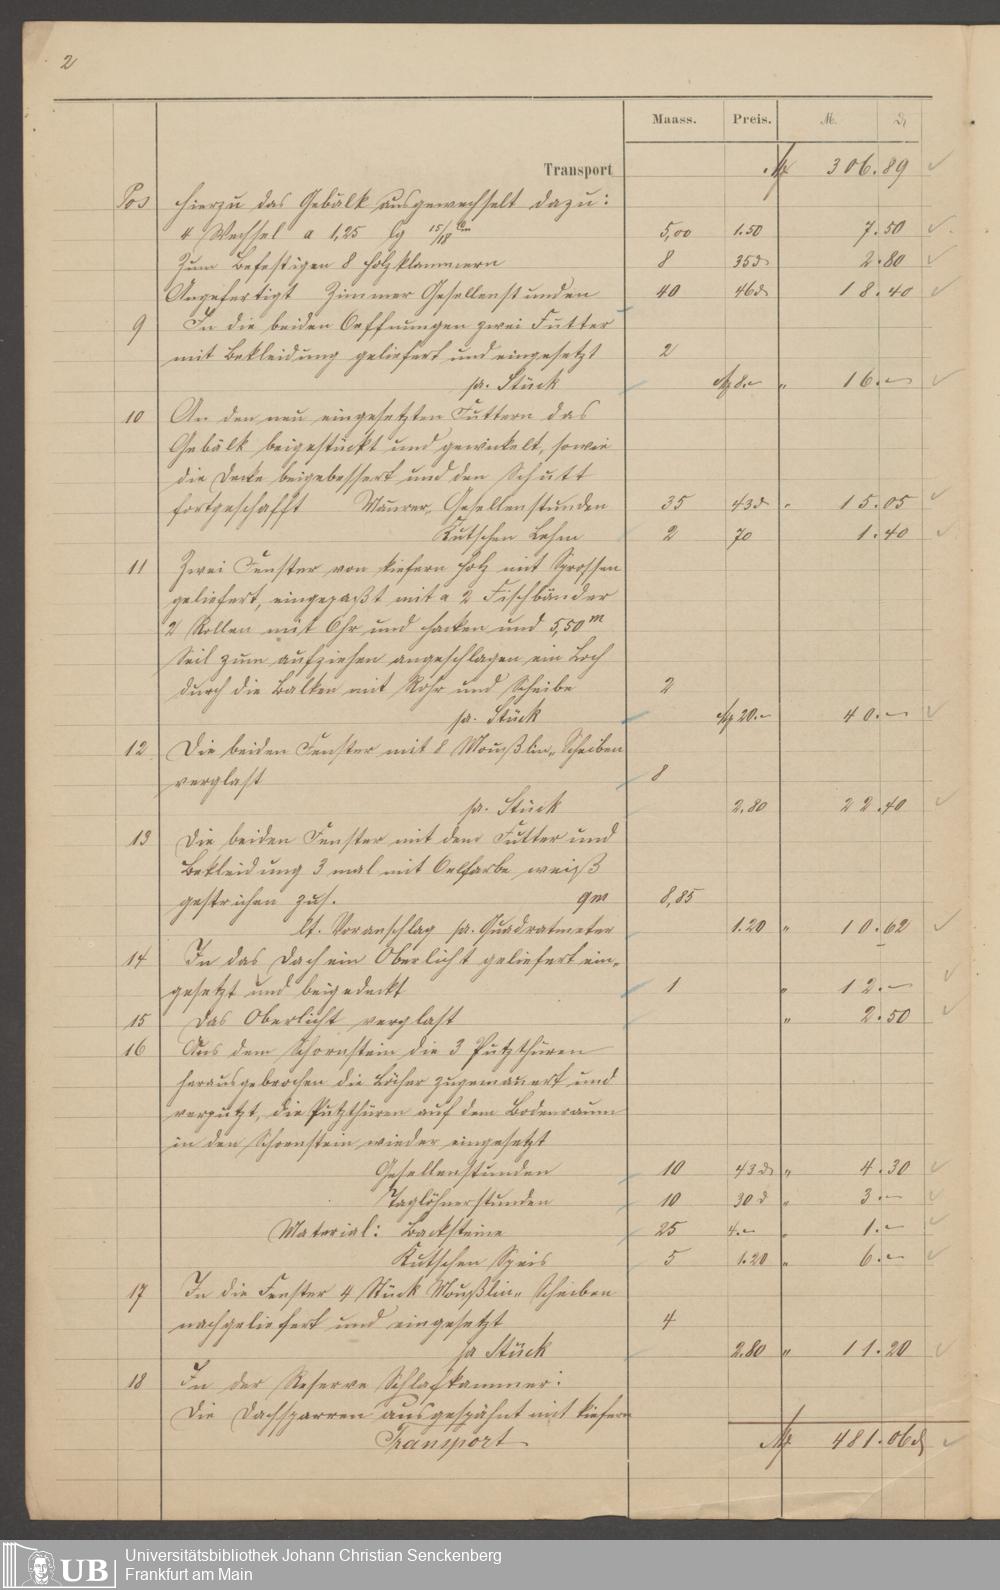 2
Maass. Preis. M. ₰
Transport M 306.89
Pos hierzu das Gebälk ausgewechselt dazu:
4 Wechsel a 1,25 lg 15/18 cm 5,00 1.50 7.50
Zum Befestigen 8 Holzklammern 8 35₰ 2.80
Angefertigt Zimmer Gesellenstunden 40 46₰ 18.40
9 In die beiden Oeffnungen zwei Futter
mit Bekleidung geliefert und eingesetzt 2
pr. Stück M 8.– " 16.–
10 An den neu eingesetzten Futtern das
Gebälk beigestückt und gewickelt, sowie
die Decke beigebessert und den Schutt
fortgeschafft Maurer-Gesellenstunden 35 43₰ " 15.05
Kutschen Lehm 2 70 1.40
11 Zwei Fenster von kiefern Holz mit Sprossen
geliefert, eingepaßt mit a 2 Fischbänder
2 Rollen mit Ohr und Hacken und 5,50 m
Seil zum aufziehen angeschlagen ein Loch
durch die Balken mit Rohr und Scheibe 2
pr. Stück M 20.– 40.–
12 Die beiden Fenster mit 8 Moußlin-Scheiben
verglast 8
pr. Stück 2.80 22.40
13 Die beiden Fenster mit dem Futter und
Bekleidung 3 mal mit Oelfarbe weiß
gestrichen zus. qm 8,85
lt. Voranschlag pr. Quadratmeter 1.20 " 10.62
14 In das Dach ein Oberlicht geliefert ein-
gesetzt und beigedeckt 1 " 12.–
15 Das Oberlicht verglast " 2.50
16 Aus dem Schornstein die 3 Putzthüren
herausgebrochen die Löcher zugemauert und
verputzt, die Putzthüren auf dem Bodenraum
in den Schornstein wieder eingesetzt
Gesellenstunden 10 43₰ " 4.30
Taglöhnerstunden 10 30₰ " 3.–
Material: Backsteine 25 4.– " 1.–
Kutschen Speis 5 1.20 " 6.–
17 In die Fenster 4 Stück Moußlin-Scheiben
nachgeliefert und eingesetzt 4
pr Stück 2.80 " 11.20
18 In der Reserve Schlafkammer:
Die Dachsparren ausgespähnt mit kiefern
Transport M 481.06₰
UB
Universitätsbibliothek Johann Christian Senckenberg
Frankfurt am Main